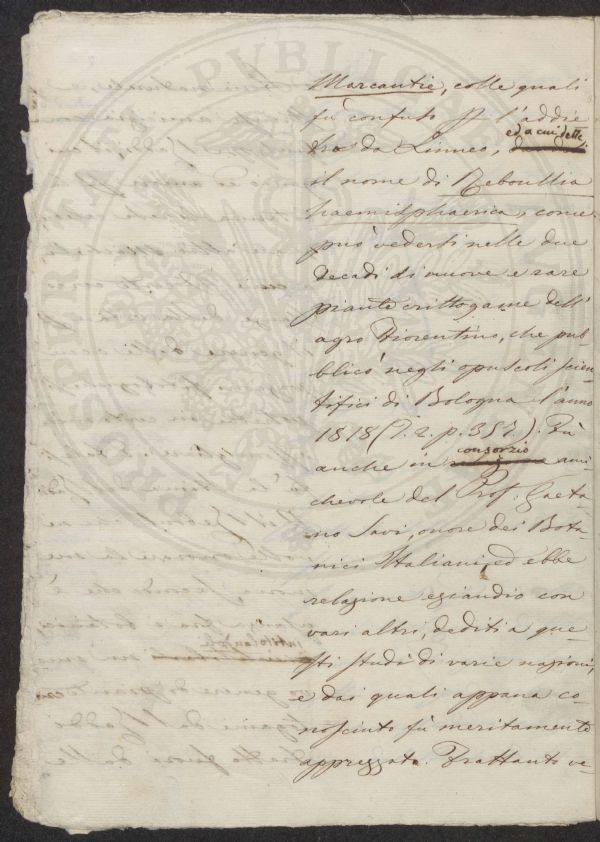 Marcantie, colle quali
fù confuso p l'addie
tro da Linneo, ed a cui dette
il nome di Reboullia
haemisphaerica, come
può vedersi nelle due
decadi di nuove e rare
piante crittogame dell'
agro Fiorentino, che pub-
blicò negli opuscoli scien-
tifici di Bologna l'anno
1818 (T. 2. p. 357.). Fù
anche in consorzio ami
chevole del Prof. Gaeta
no Savi, onore dei Bota-
nici Italiani, ed ebbe
relazione eziandio con
vari altri, dediti a que
sti studi di varie nazioni,
e dai quali appena co-
nosciuto fù meritamente
apprezzato. Frattanto ve-